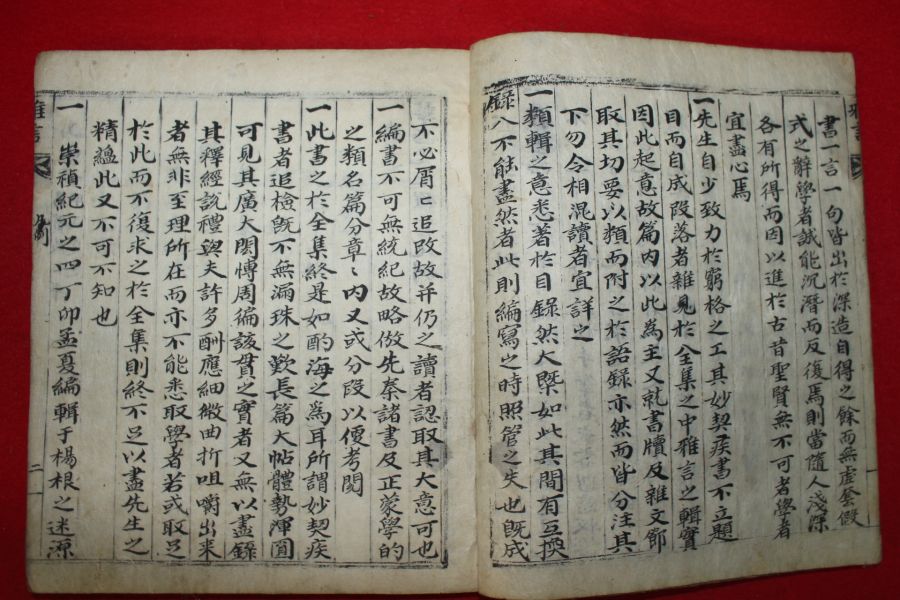 書一言一句皆出於深造自得之餘而無虛套假
式之辭學者誠能沉潛而反復焉則當隨人淺深
各有所得而因以進於古昔聖賢無不可者學者
宜盡心焉
一先生自少致力於窮格之工其妙契疾書不立題
目而自成段落者雜見於全集之中雅言之輯實
因此起意故篇內以此為主又就書牘及雜文節
取其切要以類而附之於語錄亦然而皆分注其
下勿令相混讀者宜詳之
一類輯之意悉著於目錄然大槩如此其間有互換
錄入不能盡然者此則編寫之時照管之失也旣成
不必屑〻追改故幷仍之讀者認取其大意可也
一編書不可無統紀故略倣先秦諸書及正蒙學的
之類名篇分章〻內又或分段以便考閱
一此書之於全集終是如酌海之爲耳所謂妙契疾
書者追檢旣不無漏珠之歎長篇大帖軆勢渾圓
可見其廣大閎愽周徧該貫之實者又無以盡錄
其釋經談禮與夫許多酬應細微曲折咀嚼出来
者無非至理所在而亦不能悉取學者若或取足
於此而不復求之於全集則終不足以盡先生之
精蘊此又不可不知也
一 崇禎紀元之四丁卯孟夏編輯于楊根之迷源
雅言
二
雅言